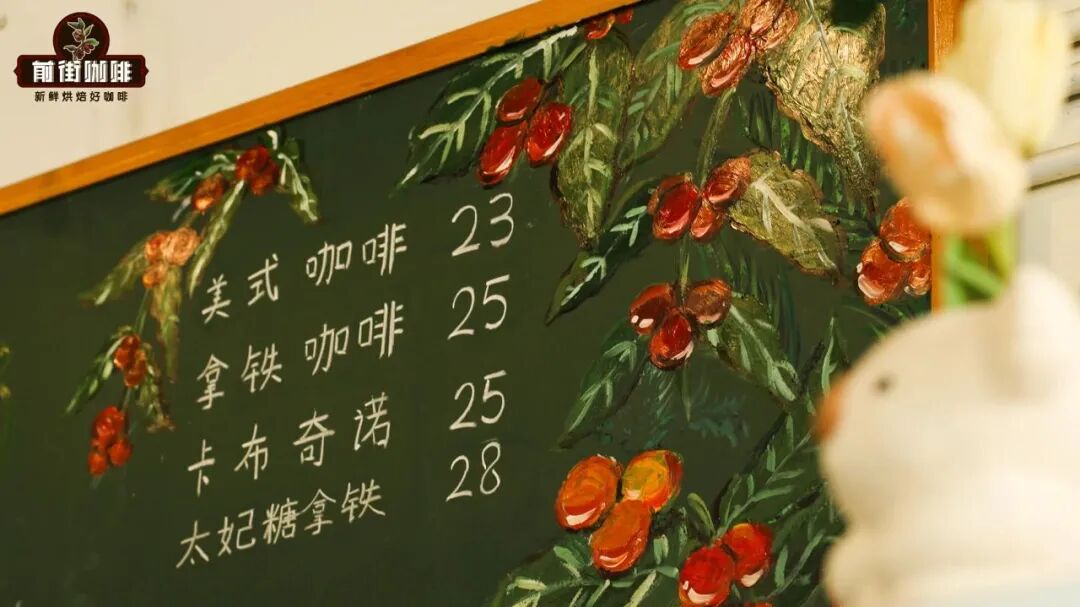 前街咖啡
新鲜烘焙好咖啡
美式咖啡 23
拿铁咖啡 25
卡布奇诺 25
太妃糖拿铁 28